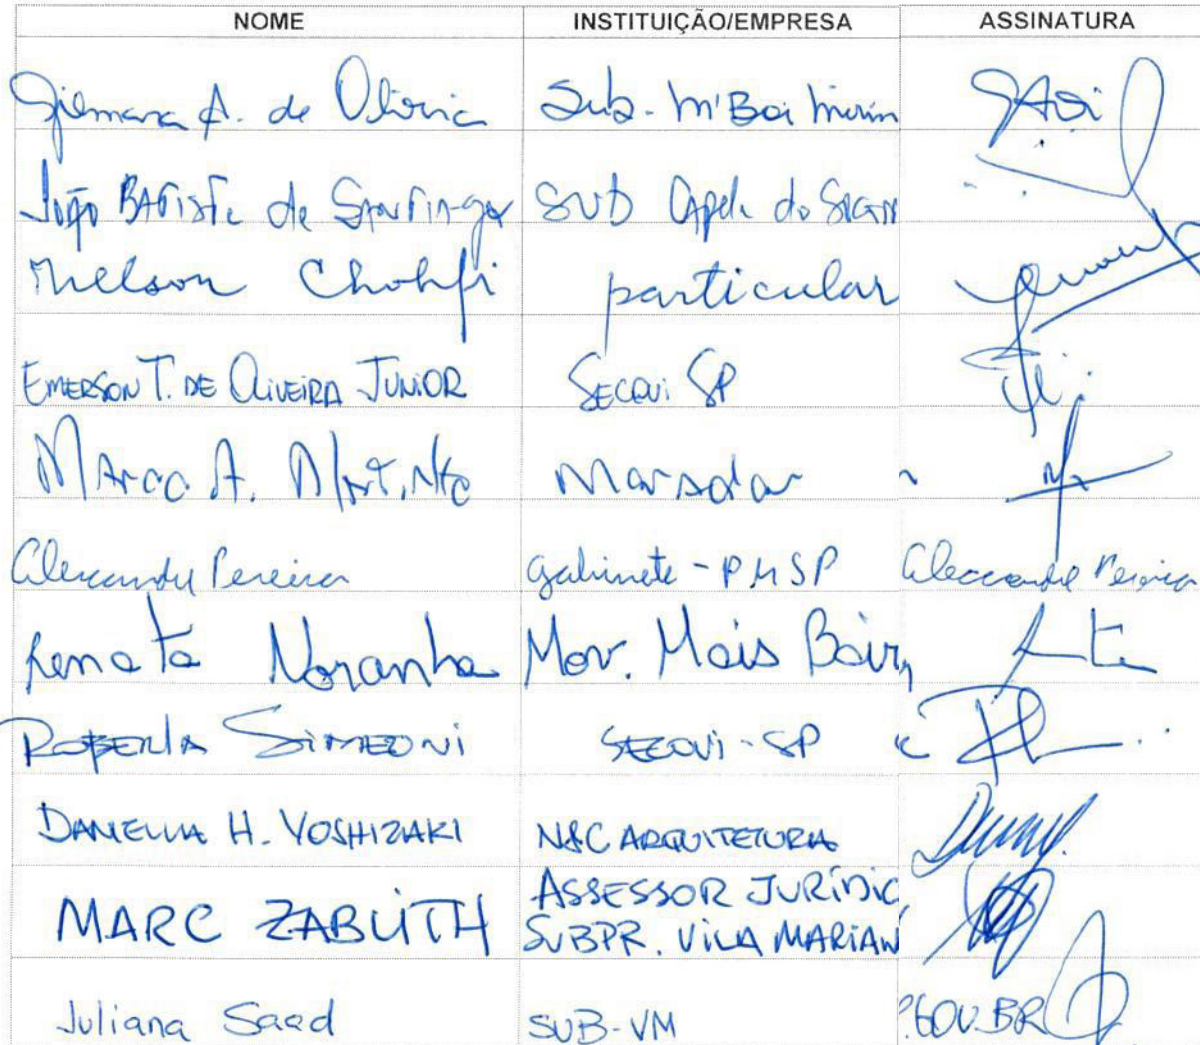 NOME INSTITUIÇÃO/EMPRESA ASSINATURA
Gilmara A. de Oliveira Sub- M'Boi Mirim
João BATISTA de SUB do
Nelson Chohfi particular
EMERSON T. DE OLIVEIRA JUNIOR SECOVI SP
MARCO A. Marsolar
Alexandre Pereira gabinete - PMSP Alexandre Pereira
Renata Noranha Mov. Mais Bair
ROBERTA SIMEONI SECOVI - SP
DANIELLA H. YOSHIZAKI N&C ARQUITETURA
MARC ZABLITH ASSESSOR JURÍDIC
SUBPR. VILA MARIAN
Juliana Saad SUB-VM .GOV.BR